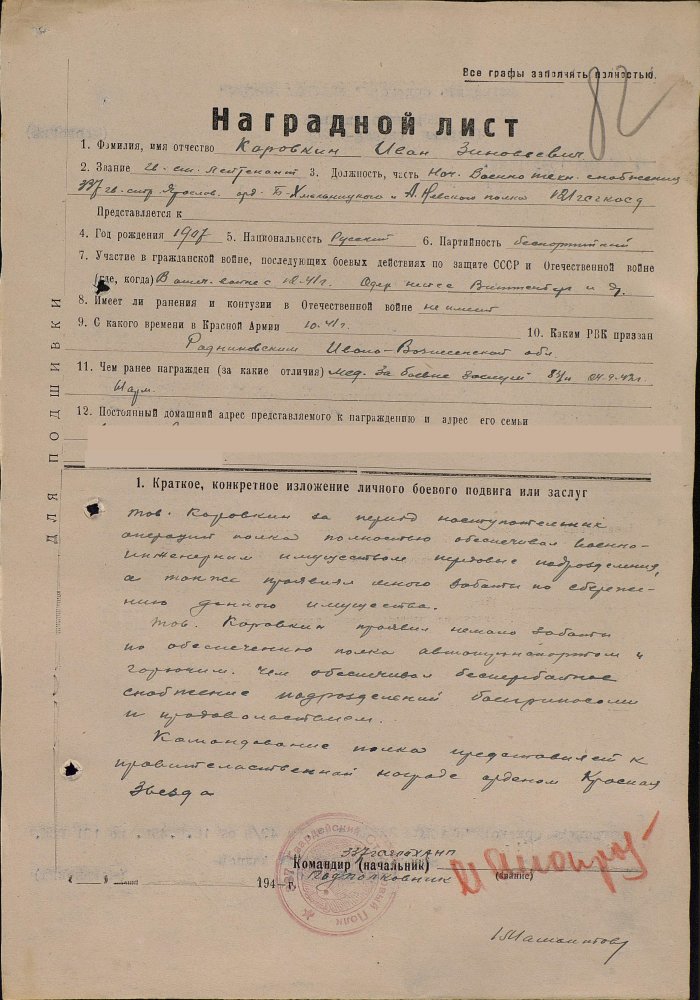 Все графы заполнить полностью.
82
Наградной лист
1. Фамилия, имя отчество Каровкин Иван Зиновеевич
2. Звание гв. ст. лейтенант 3. Должность, часть Нач. Военно техн. снабжения
337 гв. стр. Ярослав. орд. Б. Хмельницкого и А. Невского полка 121 гсгкосд
Представляется к
4. Год рождения 1907 5. Национальность Русский 6. Партийность беспартийный
7. Участие в гражданской войне, последующих боевых действиях по защите СССР и Отечественной войне
(где, когда) В отеч. войне с Одер нейсе Виттенберг и
8. Имеет ли ранения и контузии в Отечественной войне не имеет
9. С какого времени в Красной Армии 10.41г. 10. Каким РВК призван
Родниковским Ивано-Вознесенской обл.
11. Чем ранее награжден (за какие отличия) мед. За боевые заслуги
12. Постоянный домашний адрес представляемого к награждению и адрес его семьи
ДЛЯ ПОДШИВКИ
1. Краткое, конкретное изложение личного боевого подвига или заслуг
тов. Каровкин за период наступательных
операций полка полностью обеспечивал военно-
инженерным имуществом передовые подразделения,
а также проявлял много заботы по сбереже-
нию данного имущества.
Тов. Каровкин проявил немало заботы
по обеспечению полка автотранспортом и
горючим. Чем обеспечивал бесперебойное
снабжение подразделений боеприпасами
и продовольствием.
Командование полка представляет к
правительственной награде орденом Красная
Звезда
337
Командир (начальник)
194 г. Подполковник (звание)